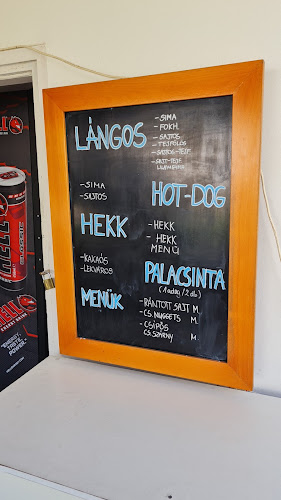 LÁNGOS
- SIMA
- FOKH.
- SAJTOS
- TEJFÖLÖS
- SAJTOS-TEJF.
- SIMA
- SAJTOS
HOT-DOG
HEKK
- HEKK
- HEKK
MENÜ
- KAKAÓS
- LEKVÁROS
PALACSINTA
(1 adag / 2 db)
MENÜK
- RÁNTOTT SAJT M.
- CS. NUGGETS M.
- CSÍPŐS
CS. SZÁRNY M.
HELL
CLASSIC
HELL
ENERGY DRINK
"ENERGY,
TASTE,
POWER."